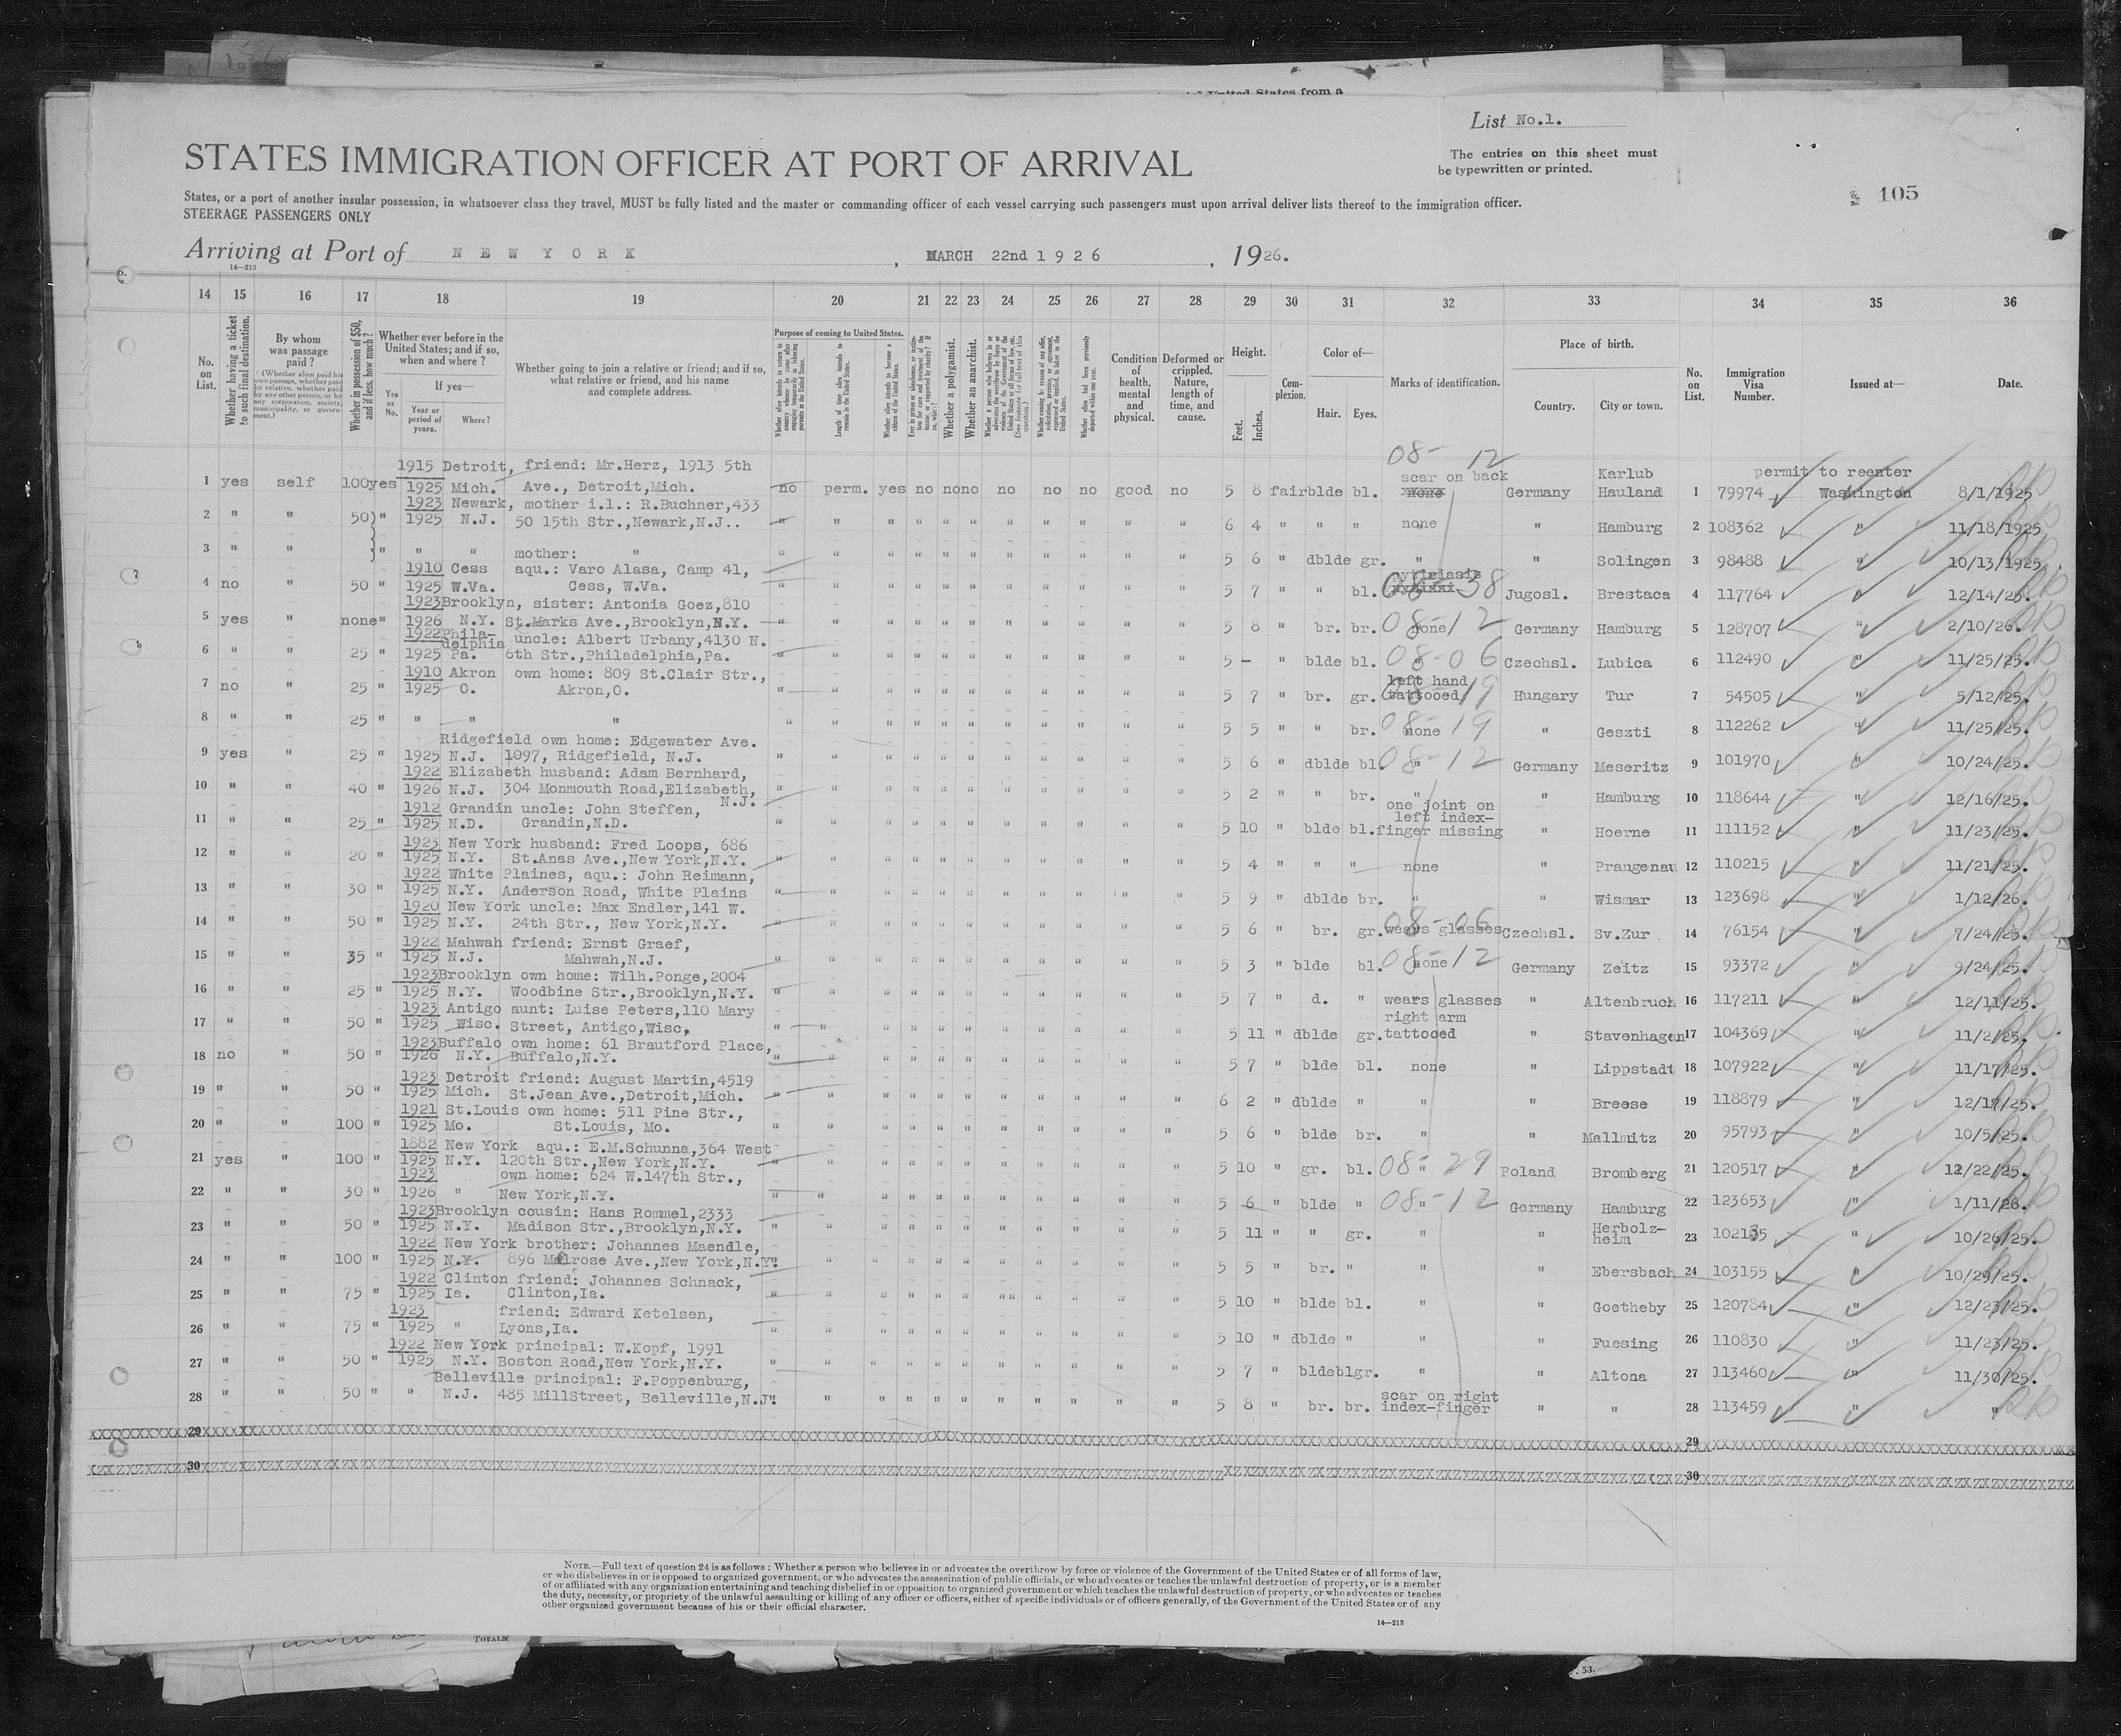 United States from a
List No.1.
STATES IMMIGRATION OFFICER AT PORT OF ARRIVAL
The entries on this sheet must
be typewritten or printed.
105
States, or a port of another insular possession, in whatsoever class they travel, MUST be fully listed and the master or commanding officer of each vessel carrying such passengers must upon arrival deliver lists thereof to the immigration officer.
STEERAGE PASSENGERS ONLY
Arriving at Port of NEW YORK, MARCH 22nd 1926, 1926.
14—213
14 15 16 17 18 19 20 21 22 23 24 25 26 27 28 29 30 31 32 33 34 35 36
No. on List.
Whether having a ticket to such final destination.
By whom was passage paid?
(Whether alien paid his own passage, whether paid by relative, whether paid by any other person, or by any corporation, society, municipality, or government.)
Whether in possession of $50, and if less, how much?
Whether ever before in the United States; and if so, when and where?
Yes or No.
If yes—
Year or period of years.
Where?
Whether going to join a relative or friend; and if so, what relative or friend, and his name and complete address.
Purpose of coming to United States.
Length of time alien intends to remain in the United States.
Whether alien intends to become a citizen of the United States.
Whether a polygamist.
Whether an anarchist.
Condition of health, mental and physical.
Deformed or crippled. Nature, length of time, and cause.
Height.
Feet. Inches.
Complexion.
Color of—
Hair. Eyes.
Marks of identification.
Place of birth.
Country. City or town.
No. on List.
Immigration Visa Number.
Issued at—
Date.
08- 12
1915 Detroit, friend: Mr.Herz, 1913 5th scar on back Karlub permit to reenter
1 yes self 100 yes 1925 Mich. Ave., Detroit,Mich. no perm. yes no no no no no no good no 5 8 fair blde bl. Germany Hauland 1 79974 Washington 8/1/1925
1923 Newark, mother i.l.: R.Buchner,433
2 " " 50) " 1925 N.J. 50 15th Str.,Newark,N.J.. " " " " " " " " " " " 6 4 " " " none " Hamburg 2 108362 " 11/18/1925
3 " " " " " mother: " " " " " " " " " " " " 5 6 " dblde gr. " " Solingen 3 98488 " 10/13/1925
1910 Cess aqu.: Varo Alasa, Camp 41, pytiriasis
4 no " 50 " 1925 W.Va. Cess, W.Va. " " " " " " " " " " " 5 7 " " bl. 08- 38 Jugosl. Brestaca 4 117764 " 12/14/25.
1923 Brooklyn, sister: Antonia Goez,810
5 yes " none " 1926 N.Y. St.Marks Ave.,Brooklyn,N.Y. " " " " " " " " " " " 5 8 " br. br. none 08-12 Germany Hamburg 5 128707 " 2/10/26.
1922 Phila-delphia uncle: Albert Urbany,4130 N.
6 " " 25 " 1925 Pa. 6th Str.,Philadelphia,Pa. " " " " " " " " " " " 5 — " blde bl. " 08-06 Czechsl. Lubica 6 112490 " 11/25/25.
1910 Akron own home: 809 St.Clair Str., left hand
7 no " 25 " 1925 O. Akron,O. " " " " " " " " " " " 5 7 " br. gr. tattooed 08-19 Hungary Tur 7 54505 " 5/12/25.
8 " " 25 " " " " " " " " " " " " " " " 5 5 " " br. none 08-19 " Geszti 8 112262 " 11/25/25.
Ridgefield own home: Edgewater Ave.
9 yes " 25 " 1925 N.J. 1097, Ridgefield, N.J. " " " " " " " " " " " 5 6 " dblde bl. " 08-12 Germany Meseritz 9 101970 " 10/24/25.
1922 Elizabeth husband: Adam Bernhard,
10 " " 40 " 1926 N.J. 304 Monmouth Road,Elizabeth, N.J. " " " " " " " " " " " 5 2 " " br. " " Hamburg 10 118644 " 12/16/25.
1912 Grandin uncle: John Steffen, one joint on left index-
11 " " 25 " 1925 N.D. Grandin,N.D. " " " " " " " " " " " 5 10 " blde bl. finger missing " Hoerne 11 111152 " 11/23/25.
1923 New York husband: Fred Loops, 686
12 " " 20 " 1925 N.Y. St.Anas Ave.,New York,N.Y. " " " " " " " " " " " 5 4 " " " none " Prangenau 12 110215 " 11/21/25.
1922 White Plaines, aqu.: John Reimann,
13 " " 30 " 1925 N.Y. Anderson Road, White Plains " " " " " " " " " " " 5 9 " dblde br. " " Wismar 13 123698 " 1/12/26.
1920 New York uncle: Max Endler,141 W.
14 " " 50 " 1925 N.Y. 24th Str., New York,N.Y. " " " " " " " " " " " 5 6 " br. gr. wears glasses 08-06 Czechsl. Sv.Zur 14 76154 " 7/24/25.
1922 Mahwah friend: Ernst Graef,
15 " " 35 " 1925 N.J. Mahwah,N.J. " " " " " " " " " " " 5 3 " blde bl. none 08-12 Germany Zeitz 15 93372 " 9/24/25.
1923 Brooklyn own home: Wilh.Ponge,2004
16 " " 25 " 1925 N.Y. Woodbine Str.,Brooklyn,N.Y. " " " " " " " " " " " 5 7 " d. " wears glasses " Altenbruch 16 117211 " 12/11/25.
1923 Antigo aunt: Luise Peters,110 Mary right arm
17 " " 50 " 1925 Wisc. Street, Antigo,Wisc, " " " " " " " " " " " 5 11 " dblde gr. tattooed " Stavenhagen 17 104369 " 11/2/25.
1923 Buffalo own home: 61 Brautford Place,
18 no " 50 " 1926 N.Y. Buffalo,N.Y. " " " " " " " " " " " 5 7 " blde bl. none " Lippstadt 18 107922 " 11/17/25.
1923 Detroit friend: August Martin,4519
19 " " 50 " 1925 Mich. St.Jean Ave.,Detroit,Mich. " " " " " " " " " " " 6 2 " dblde " " " Breese 19 118879 " 12/17/25.
1921 St.Louis own home: 511 Pine Str.,
20 " " 100 " 1925 Mo. St.Louis, Mo. " " " " " " " " " " " 5 6 " blde br. " " Mallmitz 20 95793 " 10/5/25.
1882 New York aqu.: E.M.Schunna,364 West
21 yes " 100 " 1925 N.Y. 120th Str.,New York,N.Y. " " " " " " " " " " " 5 10 " gr. bl. " 08-29 Poland Bromberg 21 120517 " 12/22/25.
1923 own home: 624 W.147th Str.,
22 " " 30 " 1926 " New York,N.Y. " " " " " " " " " " " 5 6 " blde " " 08-12 Germany Hamburg 22 123653 " 1/11/26.
1923 Brooklyn cousin: Hans Rommel,2333
23 " " 50 " 1925 N.Y. Madison Str.,Brooklyn,N.Y. " " " " " " " " " " " 5 11 " " gr. " " Herbolz-heim 23 102135 " 10/26/25.
1922 New York brother: Johannes Maendle,
24 " " 100 " 1925 N.Y. 896 Melrose Ave.,New York,N.Y. " " " " " " " " " " " 5 5 " br. " " " Ebersbach 24 103155 " 10/29/25.
1922 Clinton friend: Johannes Schnack,
25 " " 75 " 1925 Ia. Clinton,Ia. " " " " " " " " " " " 5 10 " blde bl. " " Goetheby 25 120784 " 12/23/25.
1923 friend: Edward Ketelsen,
26 " " 75 " 1925 " Lyons,Ia. " " " " " " " " " " " 5 10 " dblde " " " Fuesing 26 110830 " 11/23/25.
1922 New York principal: W.Kopf, 1991
27 " " 50 " 1925 N.Y. Boston Road,New York,N.Y. " " " " " " " " " " " 5 7 " blde blgr. " " Altona 27 113460 " 11/30/25.
Belleville principal: F.Poppenburg, scar on right
28 " " 50 " " N.J. 485 MillStreet, Belleville,N.J. " " " " " " " " " " " 5 8 " br. br. index-finger " " 28 113459 " "
29 29
30 30
NOTE.—Full text of question 24 is as follows: Whether a person who believes in or advocates the overthrow by force or violence of the Government of the United States or of all forms of law,
or who disbelieves in or is opposed to organized government, or who advocates the assassination of public officials, or who advocates or teaches the unlawful destruction of property, or is a member
of or affiliated with any organization entertaining and teaching disbelief in or opposition to organized government or which teaches the unlawful destruction of property, or who advocates or teaches
the duty, necessity, or propriety of the unlawful assaulting or killing of any officer or officers, either of specific individuals or of officers generally, of the Government of the United States or of any
other organized government because of his or their official character.
14—213
TOTALS
53.